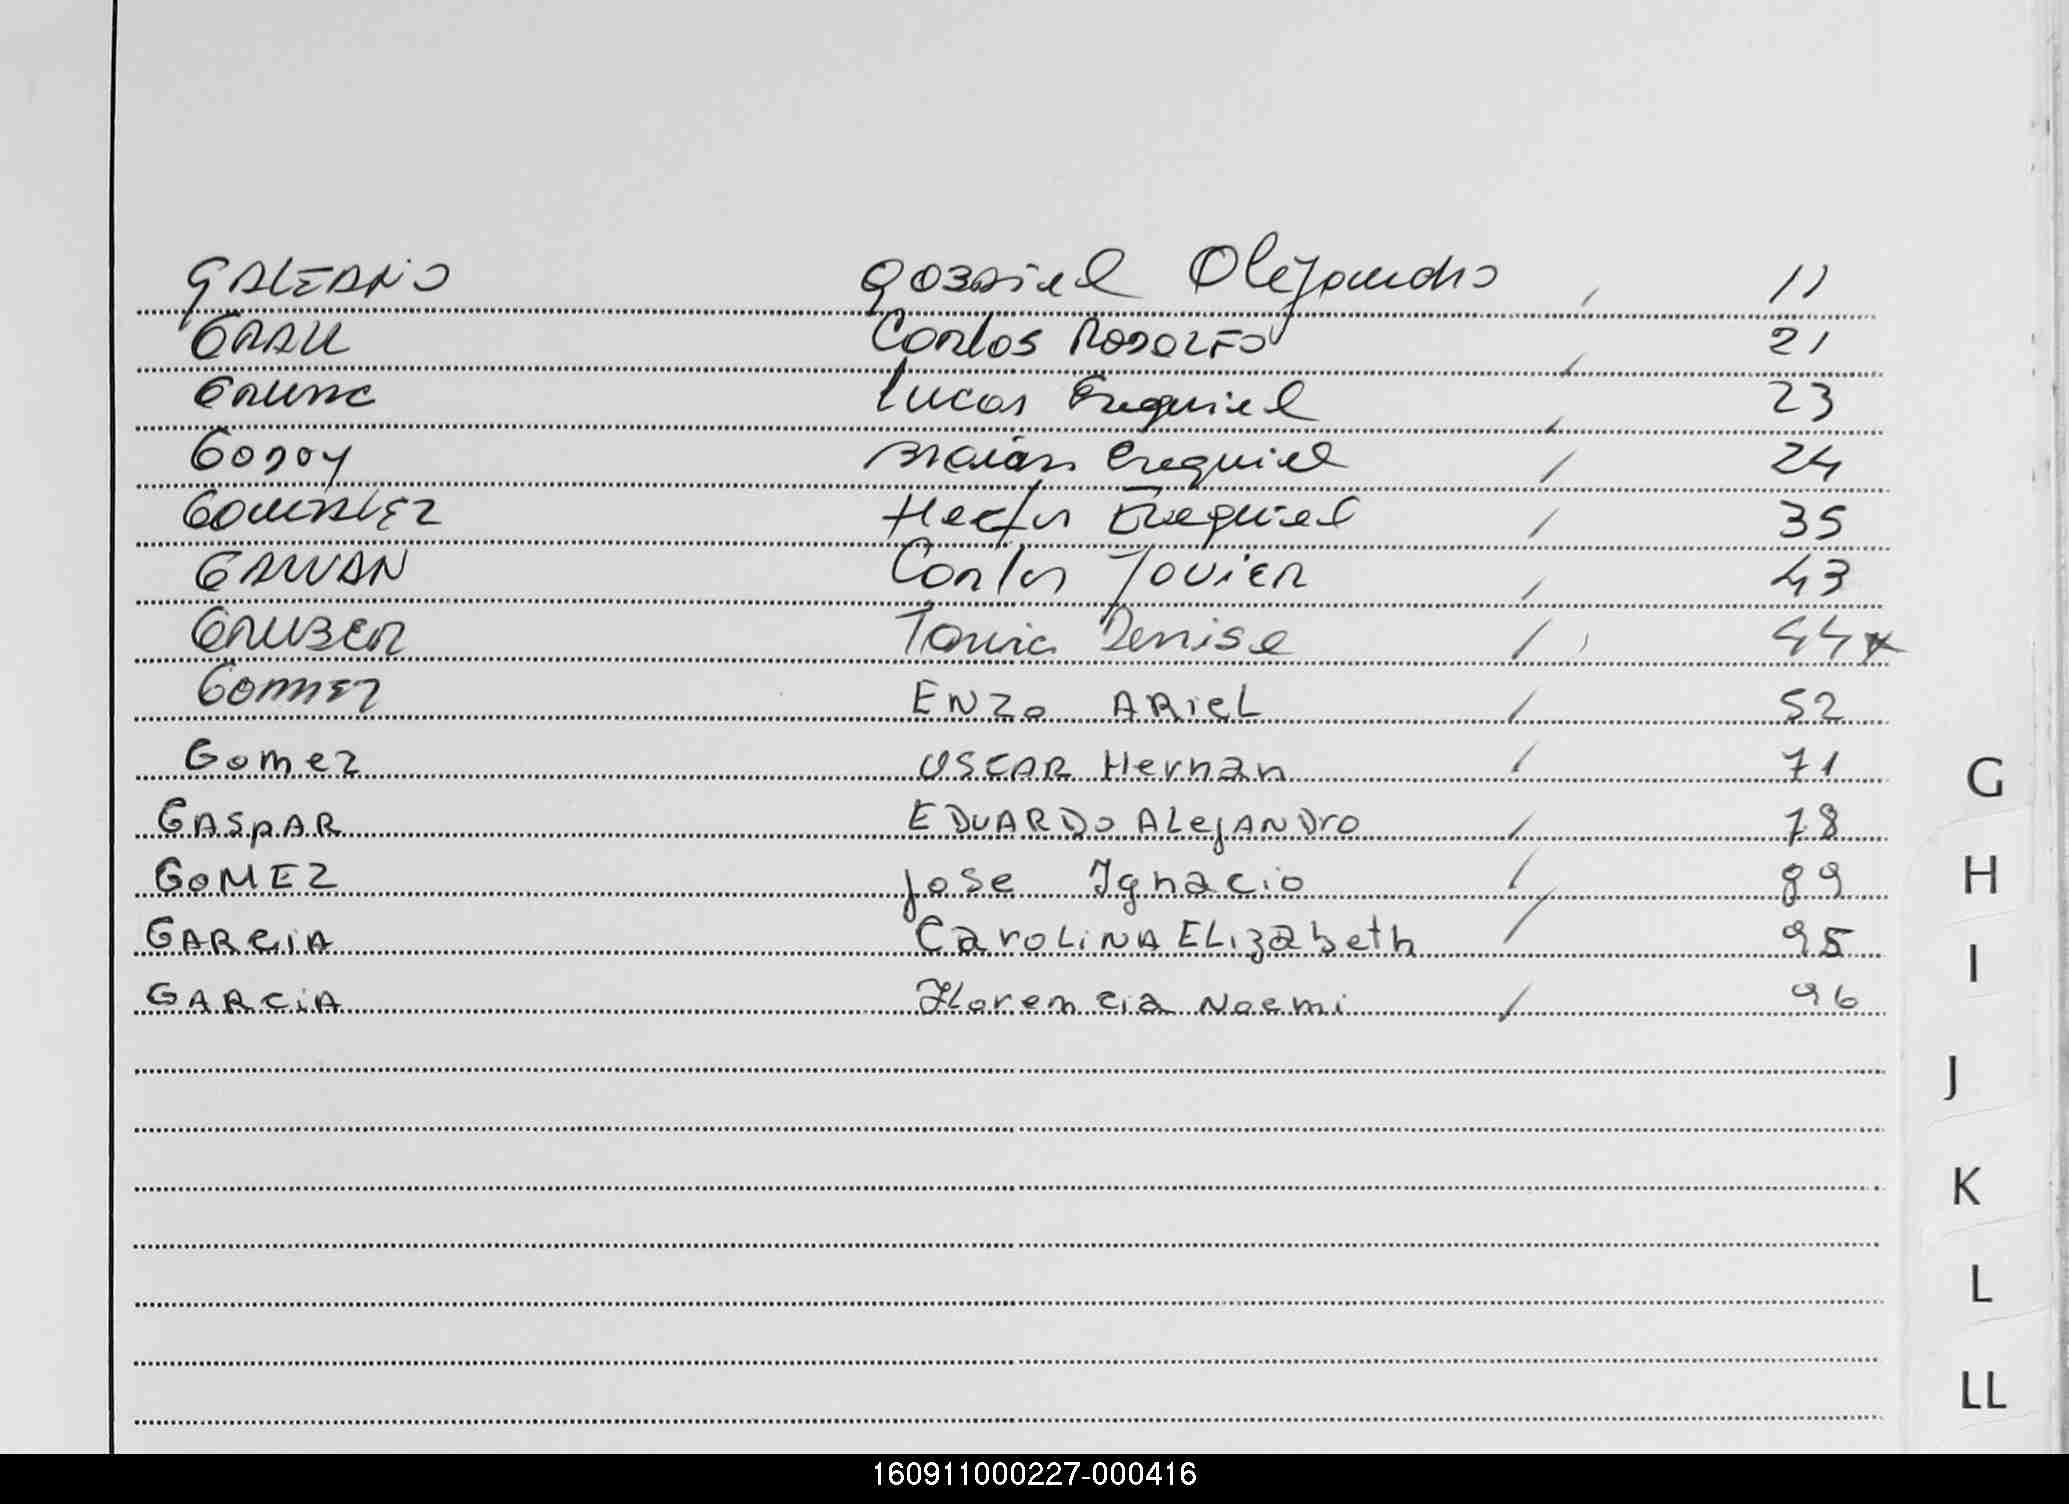 GALEANO Gabriel Alejandro 11
GRAU Carlos RODOLFO 21
GRUNC Lucas Ezequiel 23
Godoy Braian Ezequiel 24
GONZALEZ Hector Ezequiel 35
GALVAN Carlos Javier 43
GRUBER Tania Denise 44 x
Gomez ENZO ARIEL 52
Gomez OSCAR Hernan 71
GASPAR EDUARDO ALEJANDRO 78
GOMEZ Jose Ignacio 89
GARCIA CAROLINA ELIZABETH 95
GARCIA Florencia Noemi 96
G
H
I
J
K
L
LL
160911000227-000416